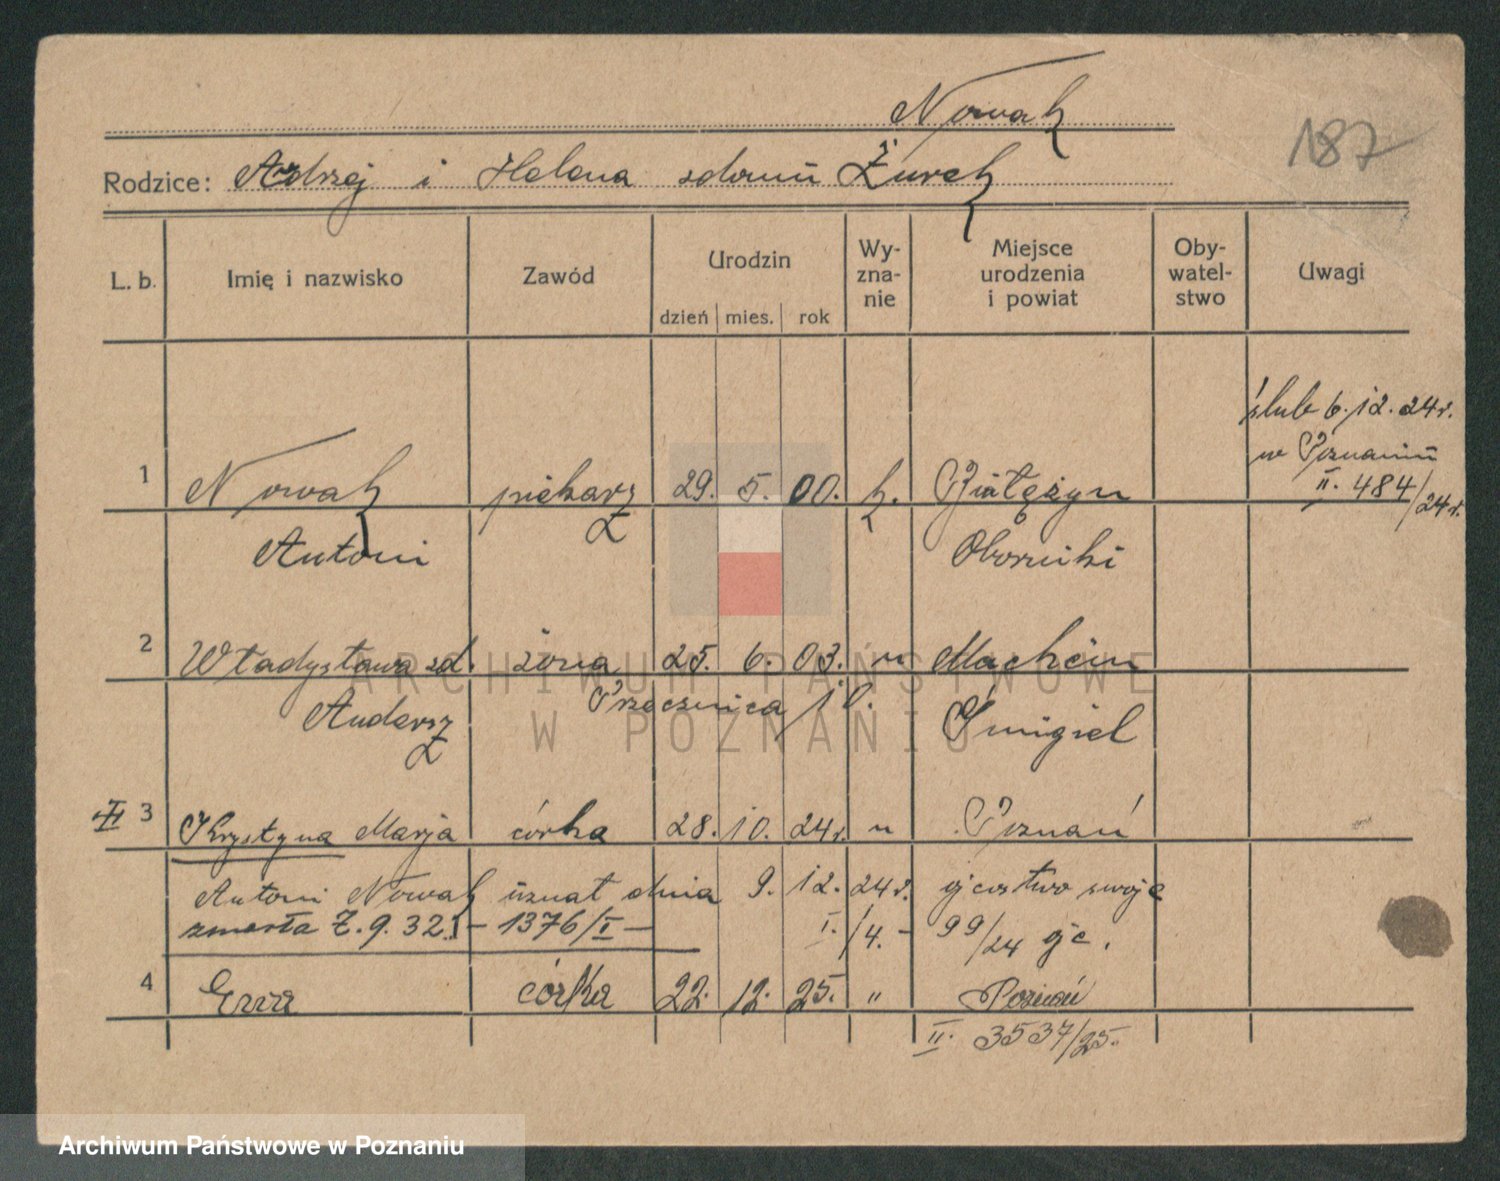 Nowak
187
Rodzice: Andrzej i Helena zdomu Żurek
L. b. Imię i nazwisko Zawód Urodzin Wy-zna-nie Miejsce urodzenia i powiat Oby-watel-stwo Uwagi
dzień mies. rok
ślub 6.12.24r.
w Poznaniu
II. 484/24r.
1 Nowak piekarz 29. 5. 00. k. Białężyn
Antoni Oborniki
2 Władysława zd. żona 25. 6. 03. " Machcin
Andersz j.v. Śmigiel
3 Krystyna Marja córka 28. 10. 24r. " Poznań
Antoni Nowak uznał dnia 9. 12. 24r. ojcostwo swoje
zmarła 7.9.32. - 1376/I - I./4. - 99/24 ojc.
4 Ewa córka 22. 12. 25. " Poznań
II. 3537/25.
ARCHIWUM PAŃSTWOWE
W POZNANIU
Archiwum Państwowe w Poznaniu